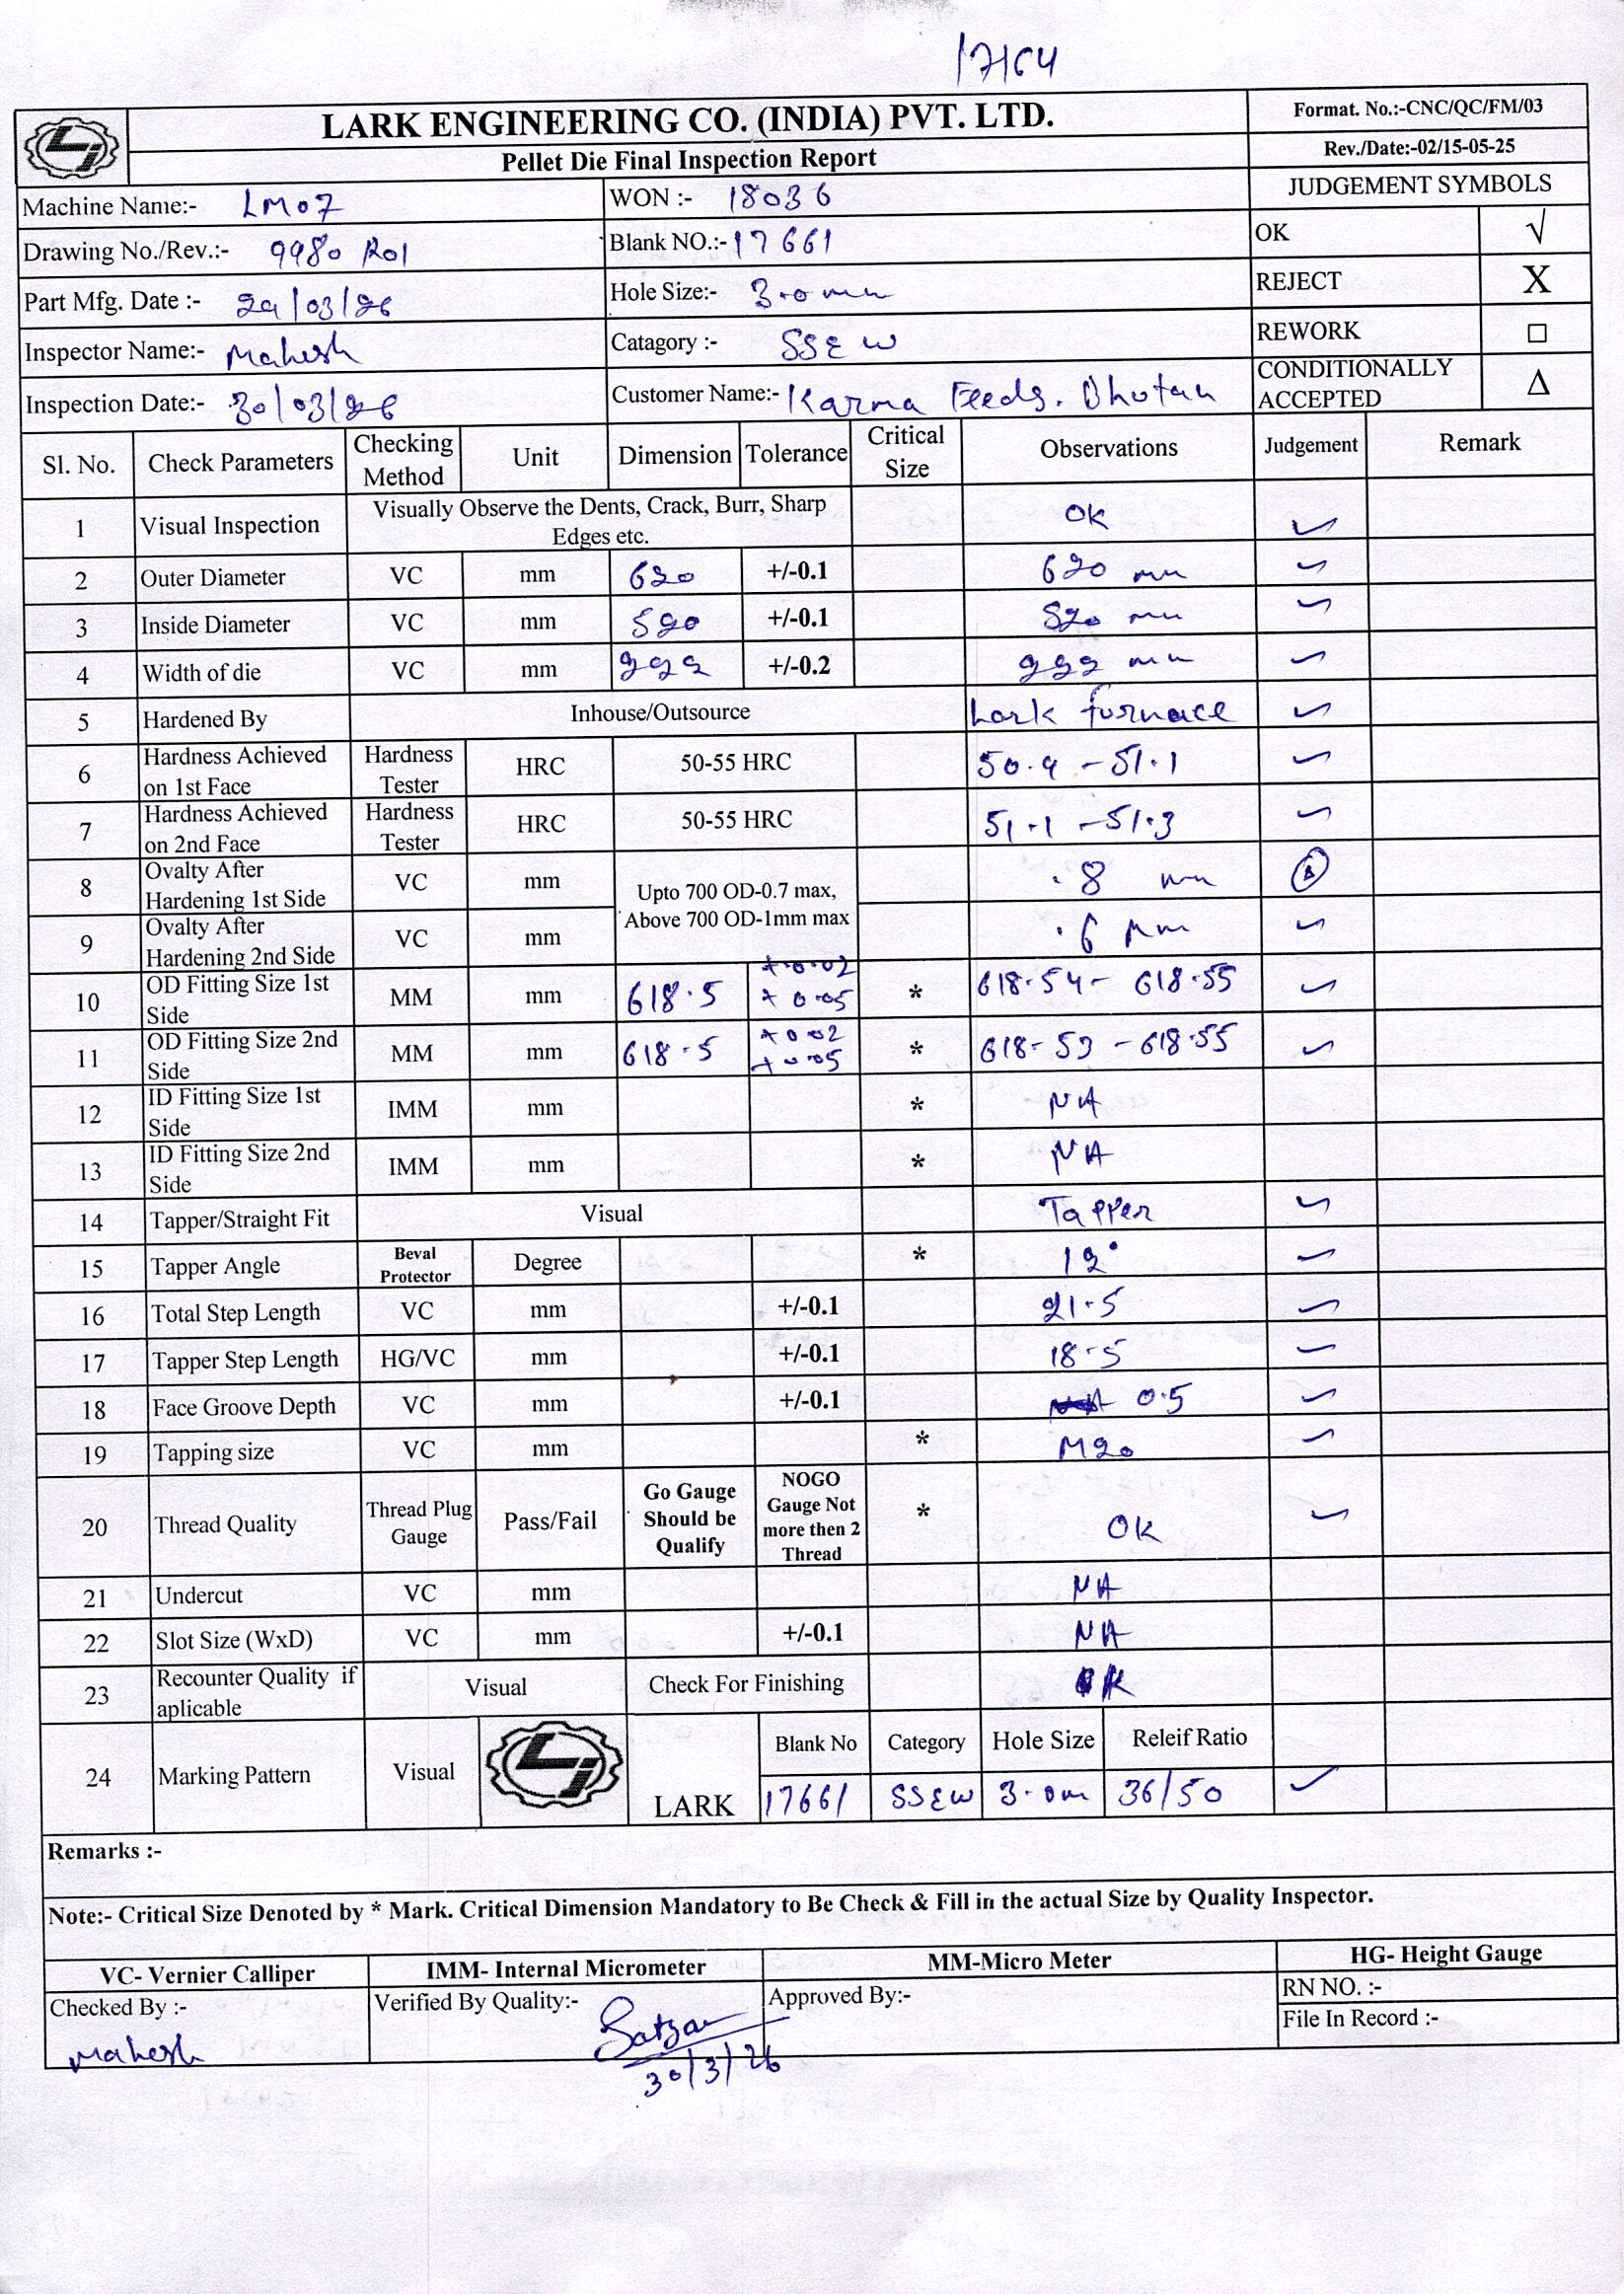 17164
LARK ENGINEERING CO. (INDIA) PVT. LTD.
Format. No.:-CNC/QC/FM/03
Pellet Die Final Inspection Report
Rev./Date:-02/15-05-25
Machine Name:- LM07 WON :- 18036 JUDGEMENT SYMBOLS
Drawing No./Rev.:- 9980 R01 Blank NO.:- 17661 OK √
Part Mfg. Date :- 29/03/26 Hole Size:- 3.0 mm REJECT X
Inspector Name:- Mahesh Catagory :- SSEW REWORK □
Inspection Date:- 30/03/26 Customer Name:- Karma Feeds. Bhutan CONDITIONALLY ACCEPTED Δ
Sl. No. Check Parameters Checking Method Unit Dimension Tolerance Critical Size Observations Judgement Remark
1 Visual Inspection Visually Observe the Dents, Crack, Burr, Sharp Edges etc. OK ✓
2 Outer Diameter VC mm 620 +/-0.1 620 mm ✓
3 Inside Diameter VC mm 520 +/-0.1 520 mm ✓
4 Width of die VC mm 222 +/-0.2 222 mm ✓
5 Hardened By Inhouse/Outsource Lark furnace ✓
6 Hardness Achieved on 1st Face Hardness Tester HRC 50-55 HRC 50.9 - 51.1 ✓
7 Hardness Achieved on 2nd Face Hardness Tester HRC 50-55 HRC 51.1 - 51.3 ✓
8 Ovalty After Hardening 1st Side VC mm Upto 700 OD-0.7 max, Above 700 OD-1mm max .8 mm
9 Ovalty After Hardening 2nd Side VC mm .6 mm ✓
10 OD Fitting Size 1st Side MM mm 618.5 +0.02 +0.05 * 618.54 - 618.55 ✓
11 OD Fitting Size 2nd Side MM mm 618.5 +0.02 +0.05 * 618.53 - 618.55 ✓
12 ID Fitting Size 1st Side IMM mm * NA
13 ID Fitting Size 2nd Side IMM mm * NA
14 Tapper/Straight Fit Visual Tapper ✓
15 Tapper Angle Beval Protector Degree * 12° ✓
16 Total Step Length VC mm +/-0.1 21.5 ✓
17 Tapper Step Length HG/VC mm +/-0.1 18.5 ✓
18 Face Groove Depth VC mm +/-0.1 0.5 ✓
19 Tapping size VC mm * M20 ✓
20 Thread Quality Thread Plug Gauge Pass/Fail Go Gauge Should be Qualify NOGO Gauge Not more then 2 Thread * OK ✓
21 Undercut VC mm NA
22 Slot Size (WxD) VC mm +/-0.1 NA
23 Recounter Quality if aplicable Visual Check For Finishing OK
24 Marking Pattern Visual LARK Blank No Category Hole Size Releif Ratio
17661 SSEW 3.0m 36/50 ✓
Remarks :-
Note:- Critical Size Denoted by * Mark. Critical Dimension Mandatory to Be Check & Fill in the actual Size by Quality Inspector.
VC- Vernier Calliper IMM- Internal Micrometer MM-Micro Meter HG- Height Gauge
Checked By :- Verified By Quality:- Approved By:- RN NO. :-
File In Record :-
Mahesh
30/3/26